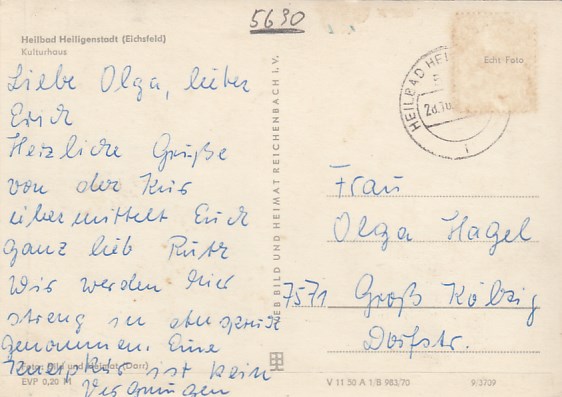 5690
Heilbad Heiligenstadt (Eichsfeld)
Kulturhaus
Liebe Olga, lieber
Erich
Herzliche Grüße
von der Kur
übermittelt Euch
ganz lieb Ruth
Wir werden hier
streng in Anspruch
genommen. Eine
Kneippkur ist kein
Vergnügen
Foto: Bild und Heimat (Darr)
EVP 0,20 M
BILD UND HEIMAT REICHENBACH I. V.
Echt Foto
HEILBAD HEI
Frau
Olga Hagel
7571 Groß Kölzig
Dorfstr.
V 11 50 A 1/B 983/70
9/3709